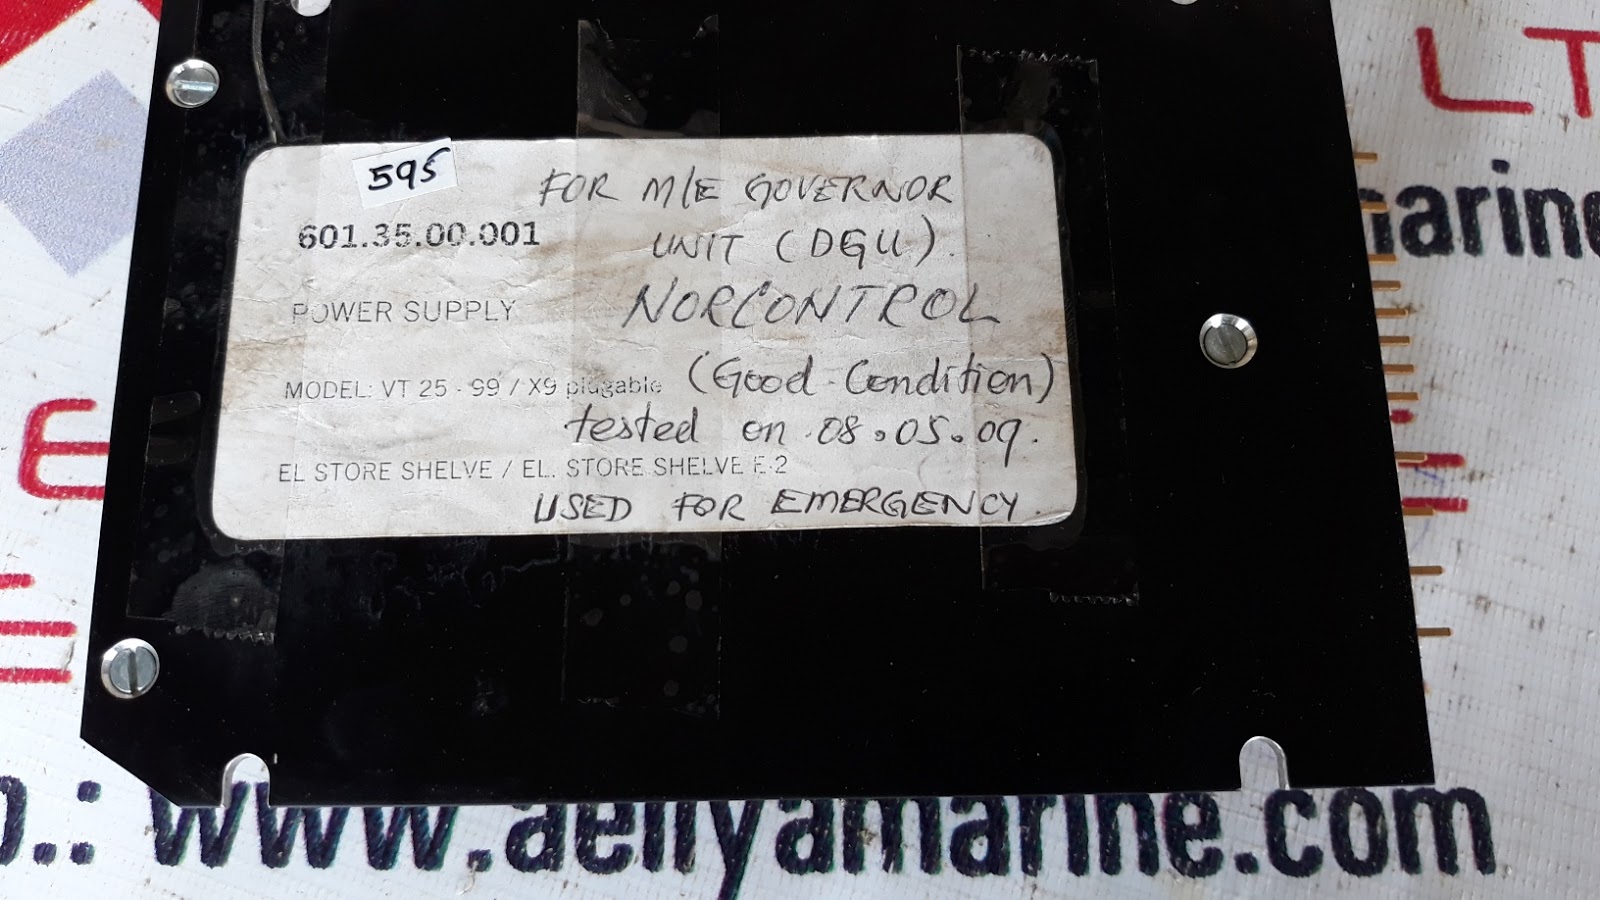 595
FOR M/E GOVERNOR
601.35.00.001
UNIT (DGU).
NORCONTROL
POWER SUPPLY
(Good Condition)
MODEL: VT 25 - 99 / X9 plugable
tested on 08.05.09.
EL STORE SHELVE / EL. STORE SHELVE E-2
USED FOR EMERGENCY.
LT
marine
E
.: www.aeliyamarine.com